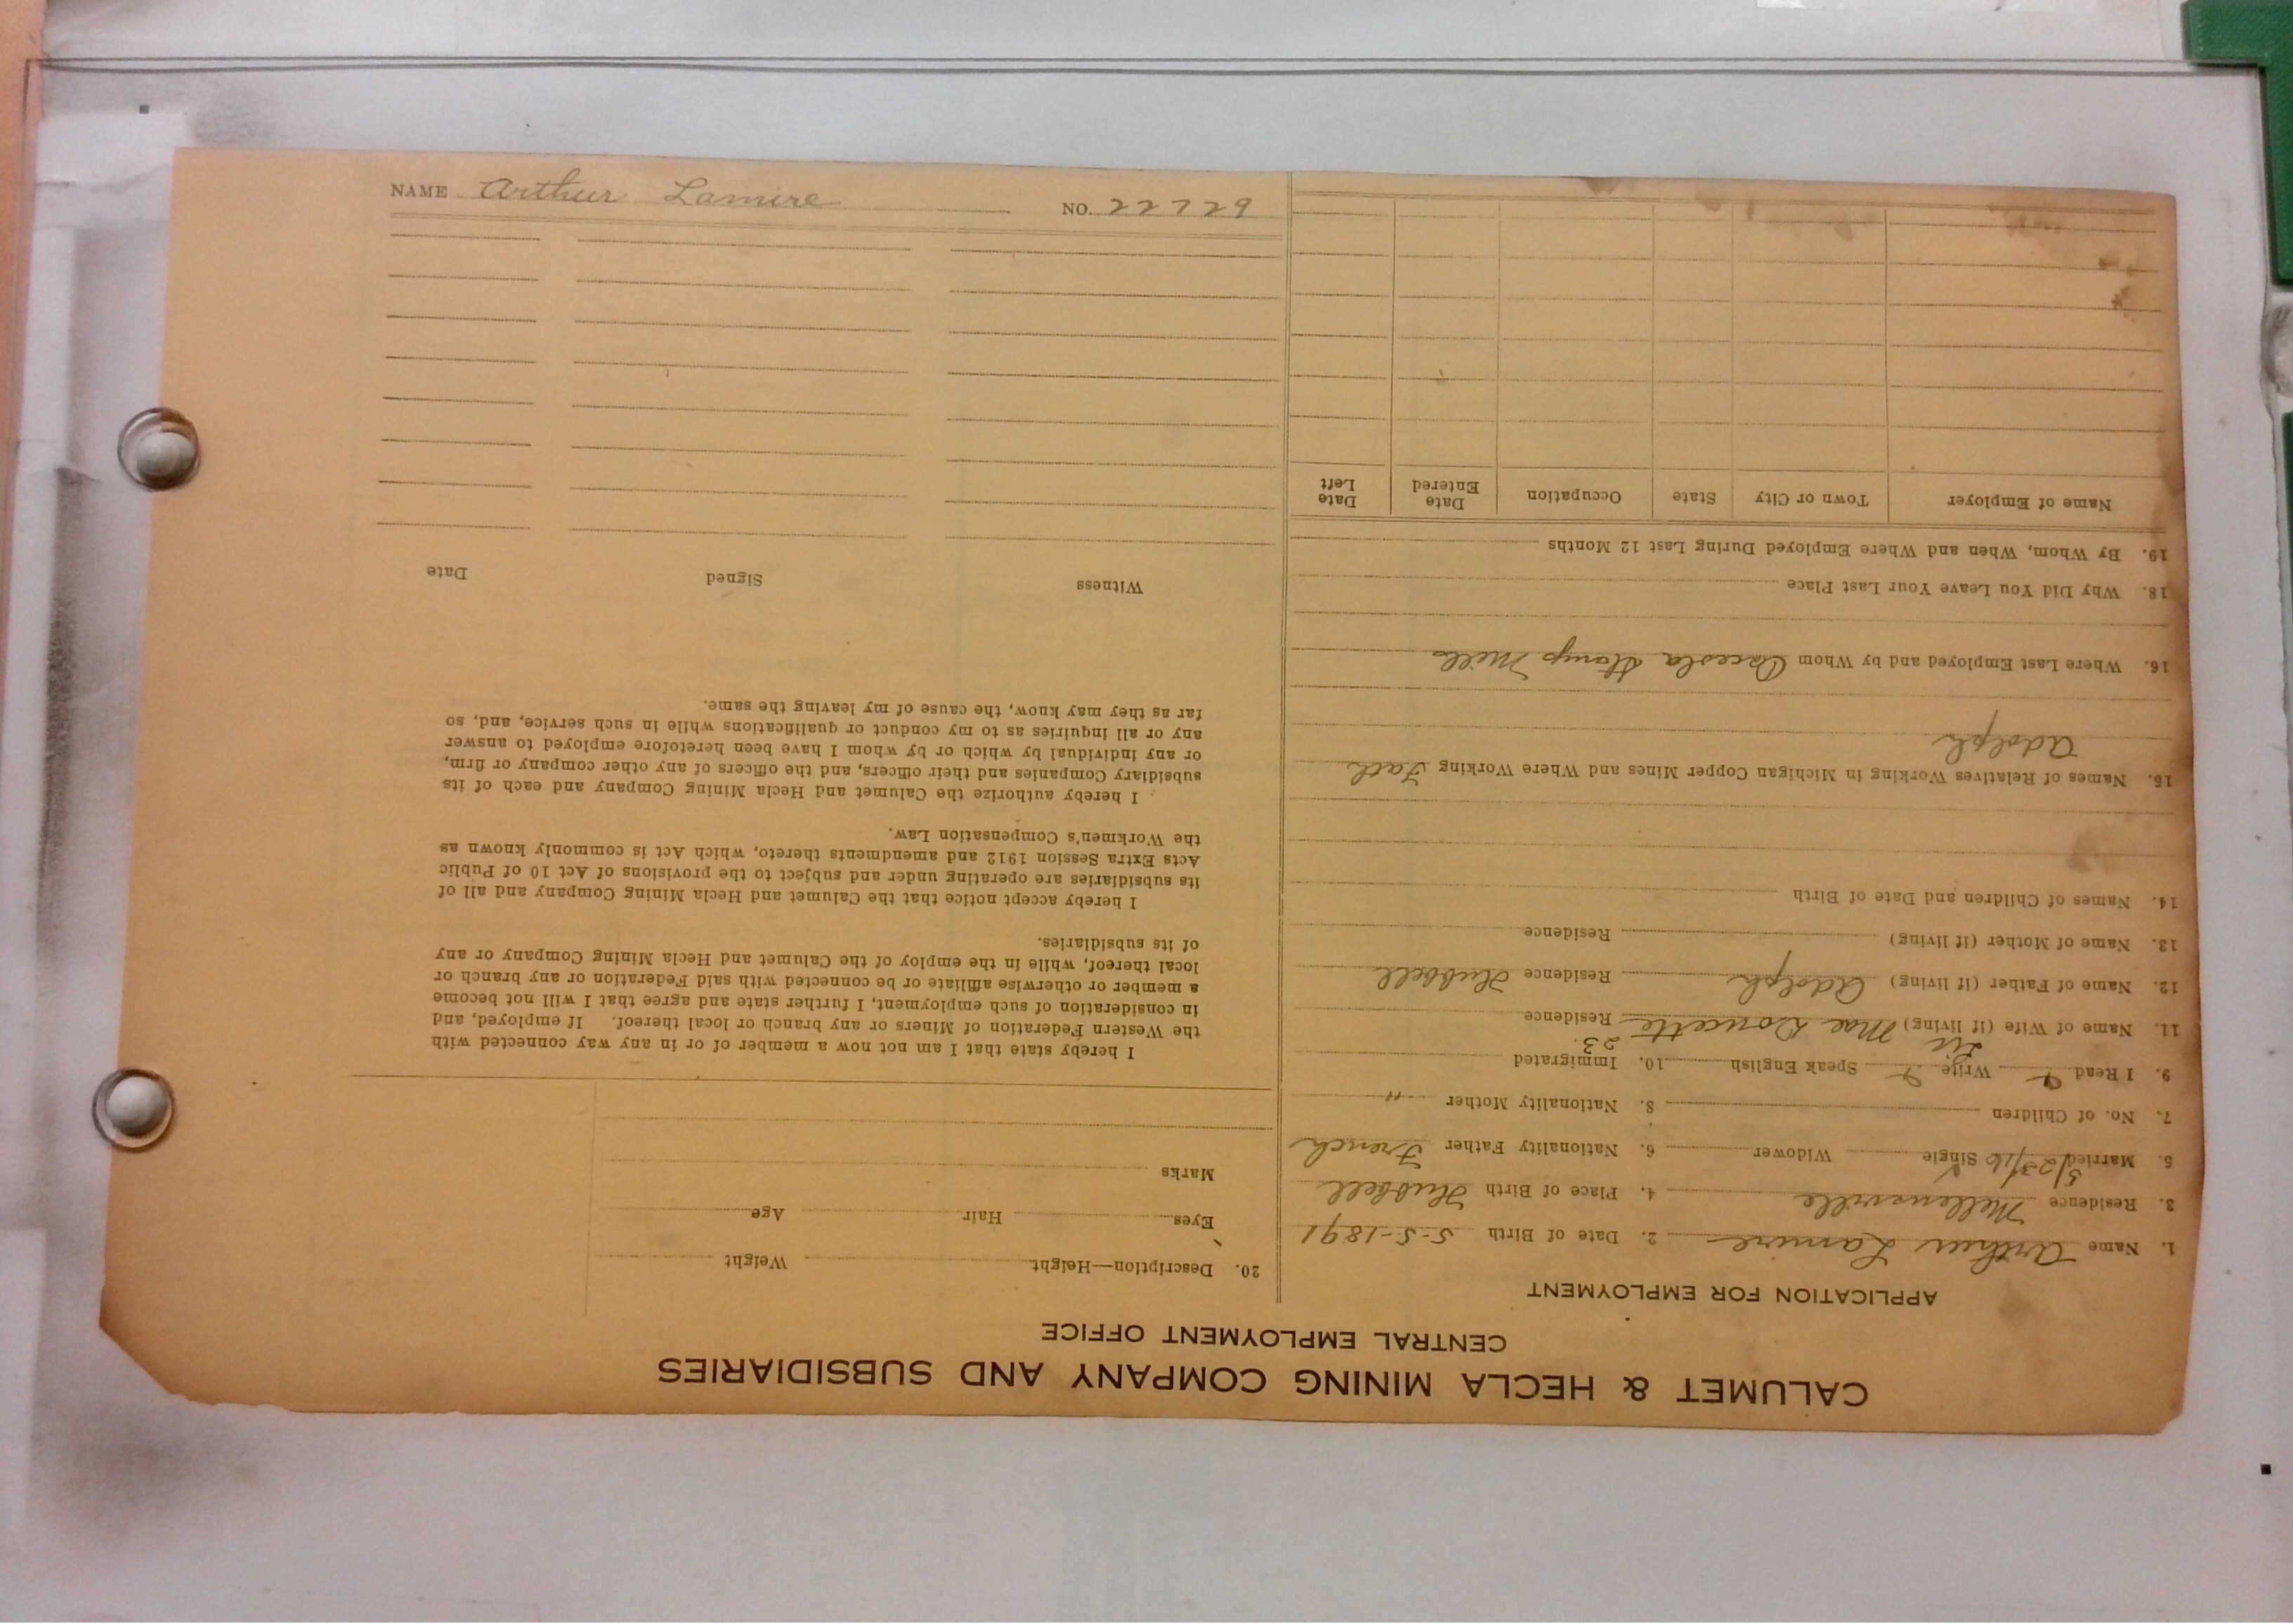 CALUMET & HECLA MINING COMPANY AND SUBSIDIARIES
CENTRAL EMPLOYMENT OFFICE
APPLICATION FOR EMPLOYMENT
1. Name Arthur Lamire 2. Date of Birth 5-5-1891
3. Residence Millersville 4. Place of Birth Hubbell
5. Married 5/23/16 Single Widower 6. Nationality Father French
7. No. of Children 8. Nationality Mother "
9. I Read Write Speak English 10. Immigrated
23.
11. Name of Wife (if living) Mae Doucette Residence
12. Name of Father (if living) Adolph Residence Hubbell
13. Name of Mother (if living) Residence
14. Names of Children and Date of Birth
15. Names of Relatives Working in Michigan Copper Mines and Where Working Fath
Adolph
16. Where Last Employed and by Whom Osceola Stamp Mill
18. Why Did You Leave Your Last Place
19. By Whom, When and Where Employed During Last 12 Months
Name of Employer Town or City State Occupation Date Entered Date Left
20. Description—Height Weight
Eyes Hair Age
Marks
I hereby state that I am not now a member of or in any way connected with
the Western Federation of Miners or any branch or local thereof. If employed, and
in consideration of such employment, I further state and agree that I will not become
a member or otherwise affiliate or be connected with said Federation or any branch or
local thereof, while in the employ of the Calumet and Hecla Mining Company or any
of its subsidiaries.
I hereby accept notice that the Calumet and Hecla Mining Company and all of
its subsidiaries are operating under and subject to the provisions of Act 10 of Public
Acts Extra Session 1912 and amendments thereto, which Act is commonly known as
the Workmen's Compensation Law.
I hereby authorize the Calumet and Hecla Mining Company and each of its
subsidiary Companies and their officers, and the officers of any other company or firm,
or any individual by which or by whom I have been heretofore employed to answer
any or all inquiries as to my conduct or qualifications while in such service, and, so
far as they may know, the cause of my leaving the same.
Witness Signed Date
NAME Arthur Lamire NO. 22729